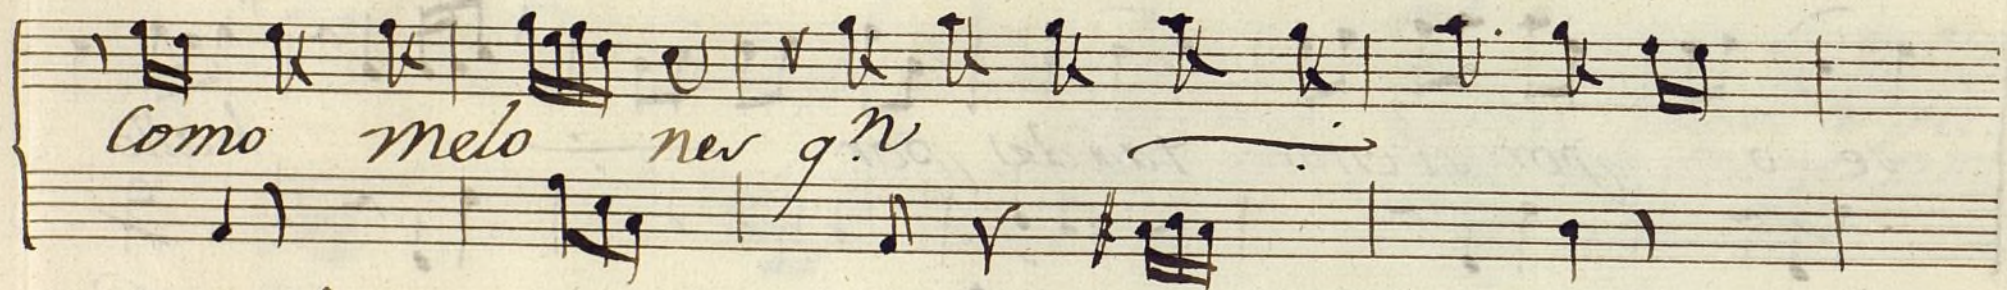 Como melo nes q.n